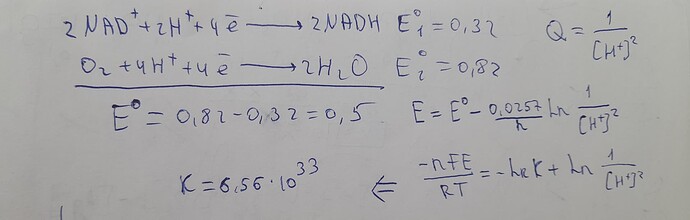 2NAD⁺+2H⁺+4ē → 2NADH E°₁=0,32 Q = 1/[H⁺]²
O₂+4H⁺+4ē → 2H₂O E°₂=0,82
E°=0,82-0,32=0,5 E=E°-0,0257/n ln 1/[H⁺]²
K=6,56·10³³ ⇐ -nFE/RT=-lnK+ln 1/[H⁺]²